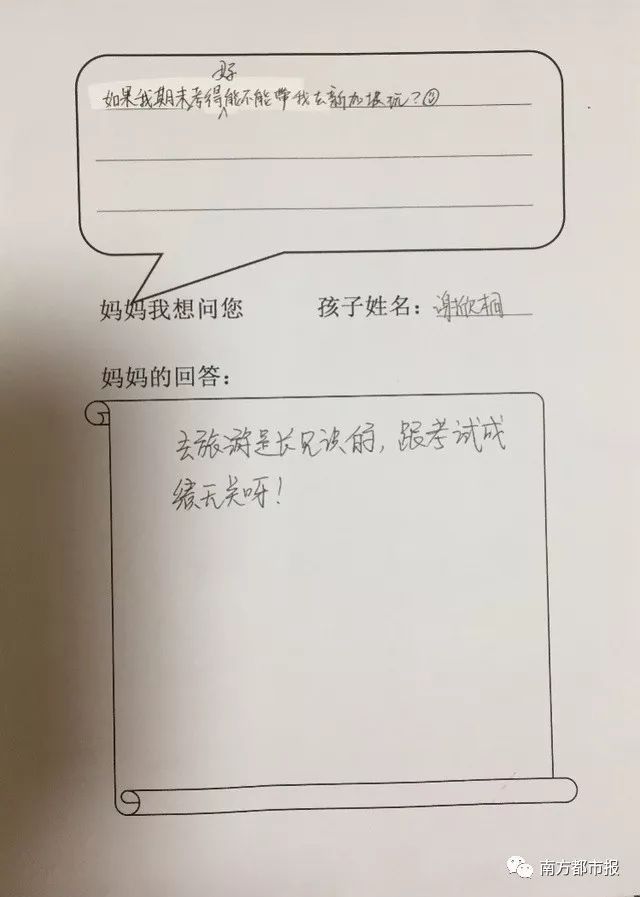 如果我期末考得好能不能带我去新加坡玩？☺
妈妈我想问您
孩子姓名：谢欣桐
妈妈的回答：
去旅游是长见识的，跟考试成
绩无关呀！
南方都市报